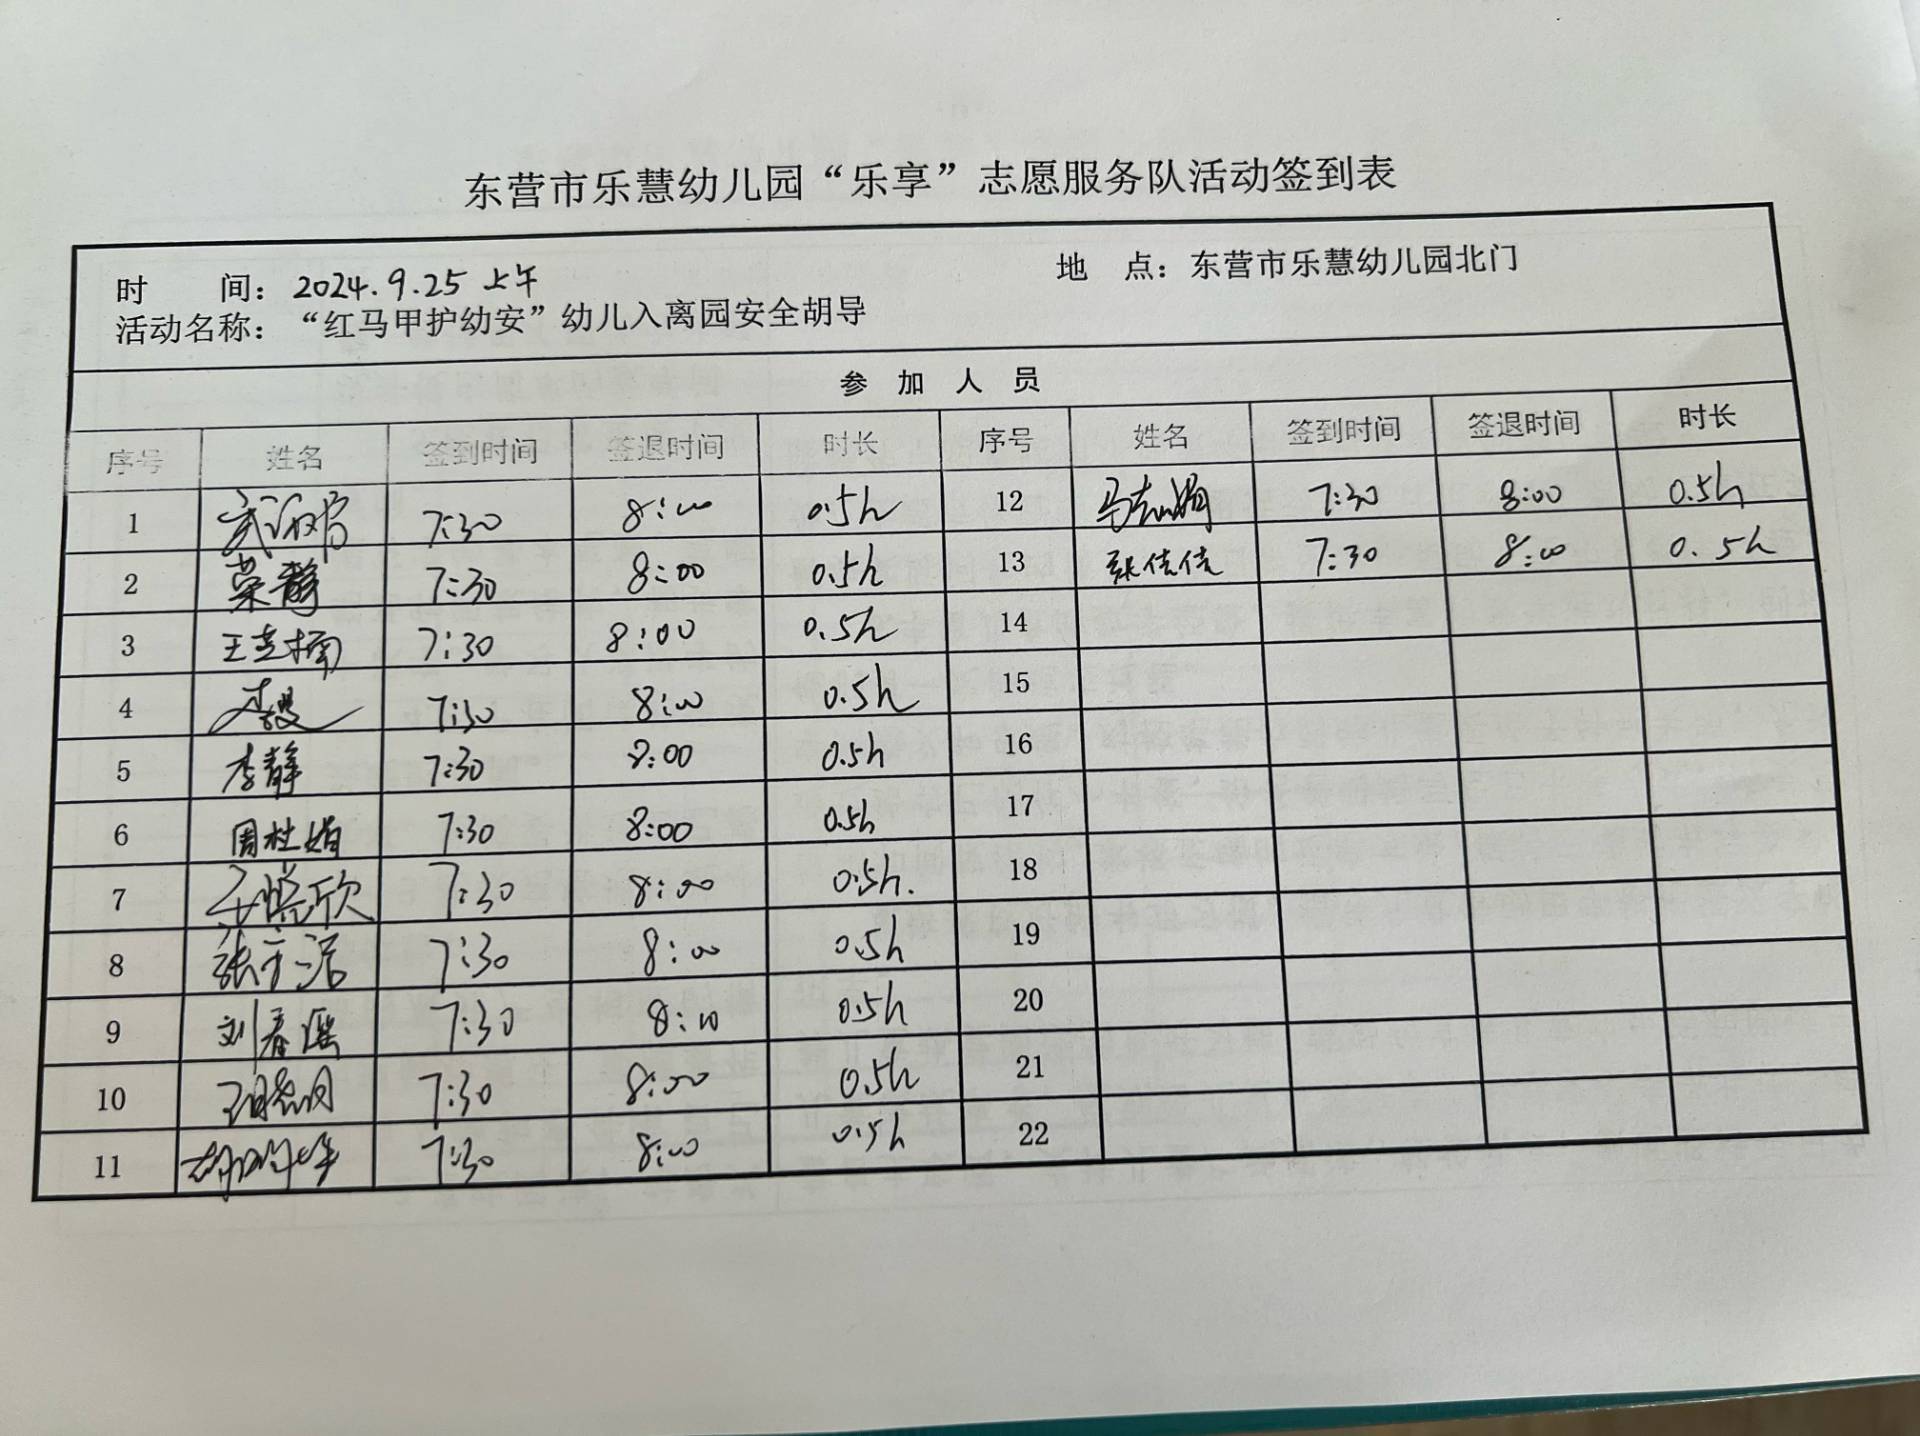 东营市乐慧幼儿园“乐享”志愿服务队活动签到表
时 间：2024.9.25 上午 地 点：东营市乐慧幼儿园北门
活动名称：“红马甲护幼安”幼儿入离园安全胡导
参 加 人 员
序号 姓名 签到时间 签退时间 时长 序号 姓名 签到时间 签退时间 时长
1 7:30 8:00 0.5h 12 马志娟 7:30 8:00 0.5h
2 荣静 7:30 8:00 0.5h 13 张佳佳 7:30 8:00 0.5h
3 王楠 7:30 8:00 0.5h 14
4 7:30 8:00 0.5h 15
5 李静 7:30 8:00 0.5h 16
6 周杜娟 7:30 8:00 0.5h 17
7 欣 7:30 8:00 0.5h. 18
8 张 7:30 8:00 0.5h 19
9 刘春瑶 7:30 8:10 0.5h 20
10 7:30 8:00 0.5h 21
11 7:30 8:00 0.5h 22